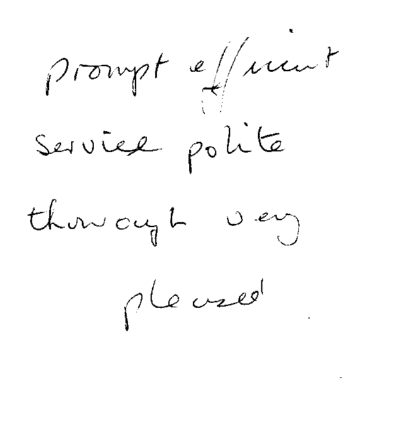 prompt efficient
service polite
thorough very
pleased